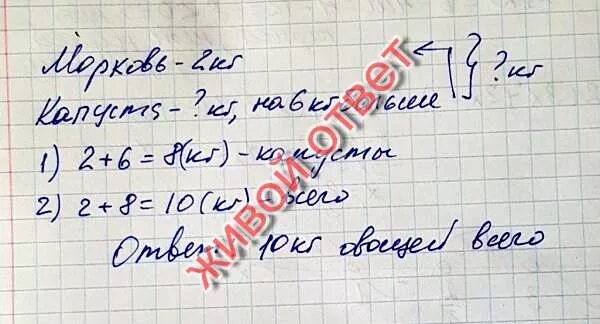 Морковь - 2кг
Капуста - ? кг, на 6 кг больше
? кг
1) 2+6=8(кг) - капусты
2) 2+8=10(кг) - всего
Ответ: 10кг овощей всего
ЖИВОЙ ОТВЕТ